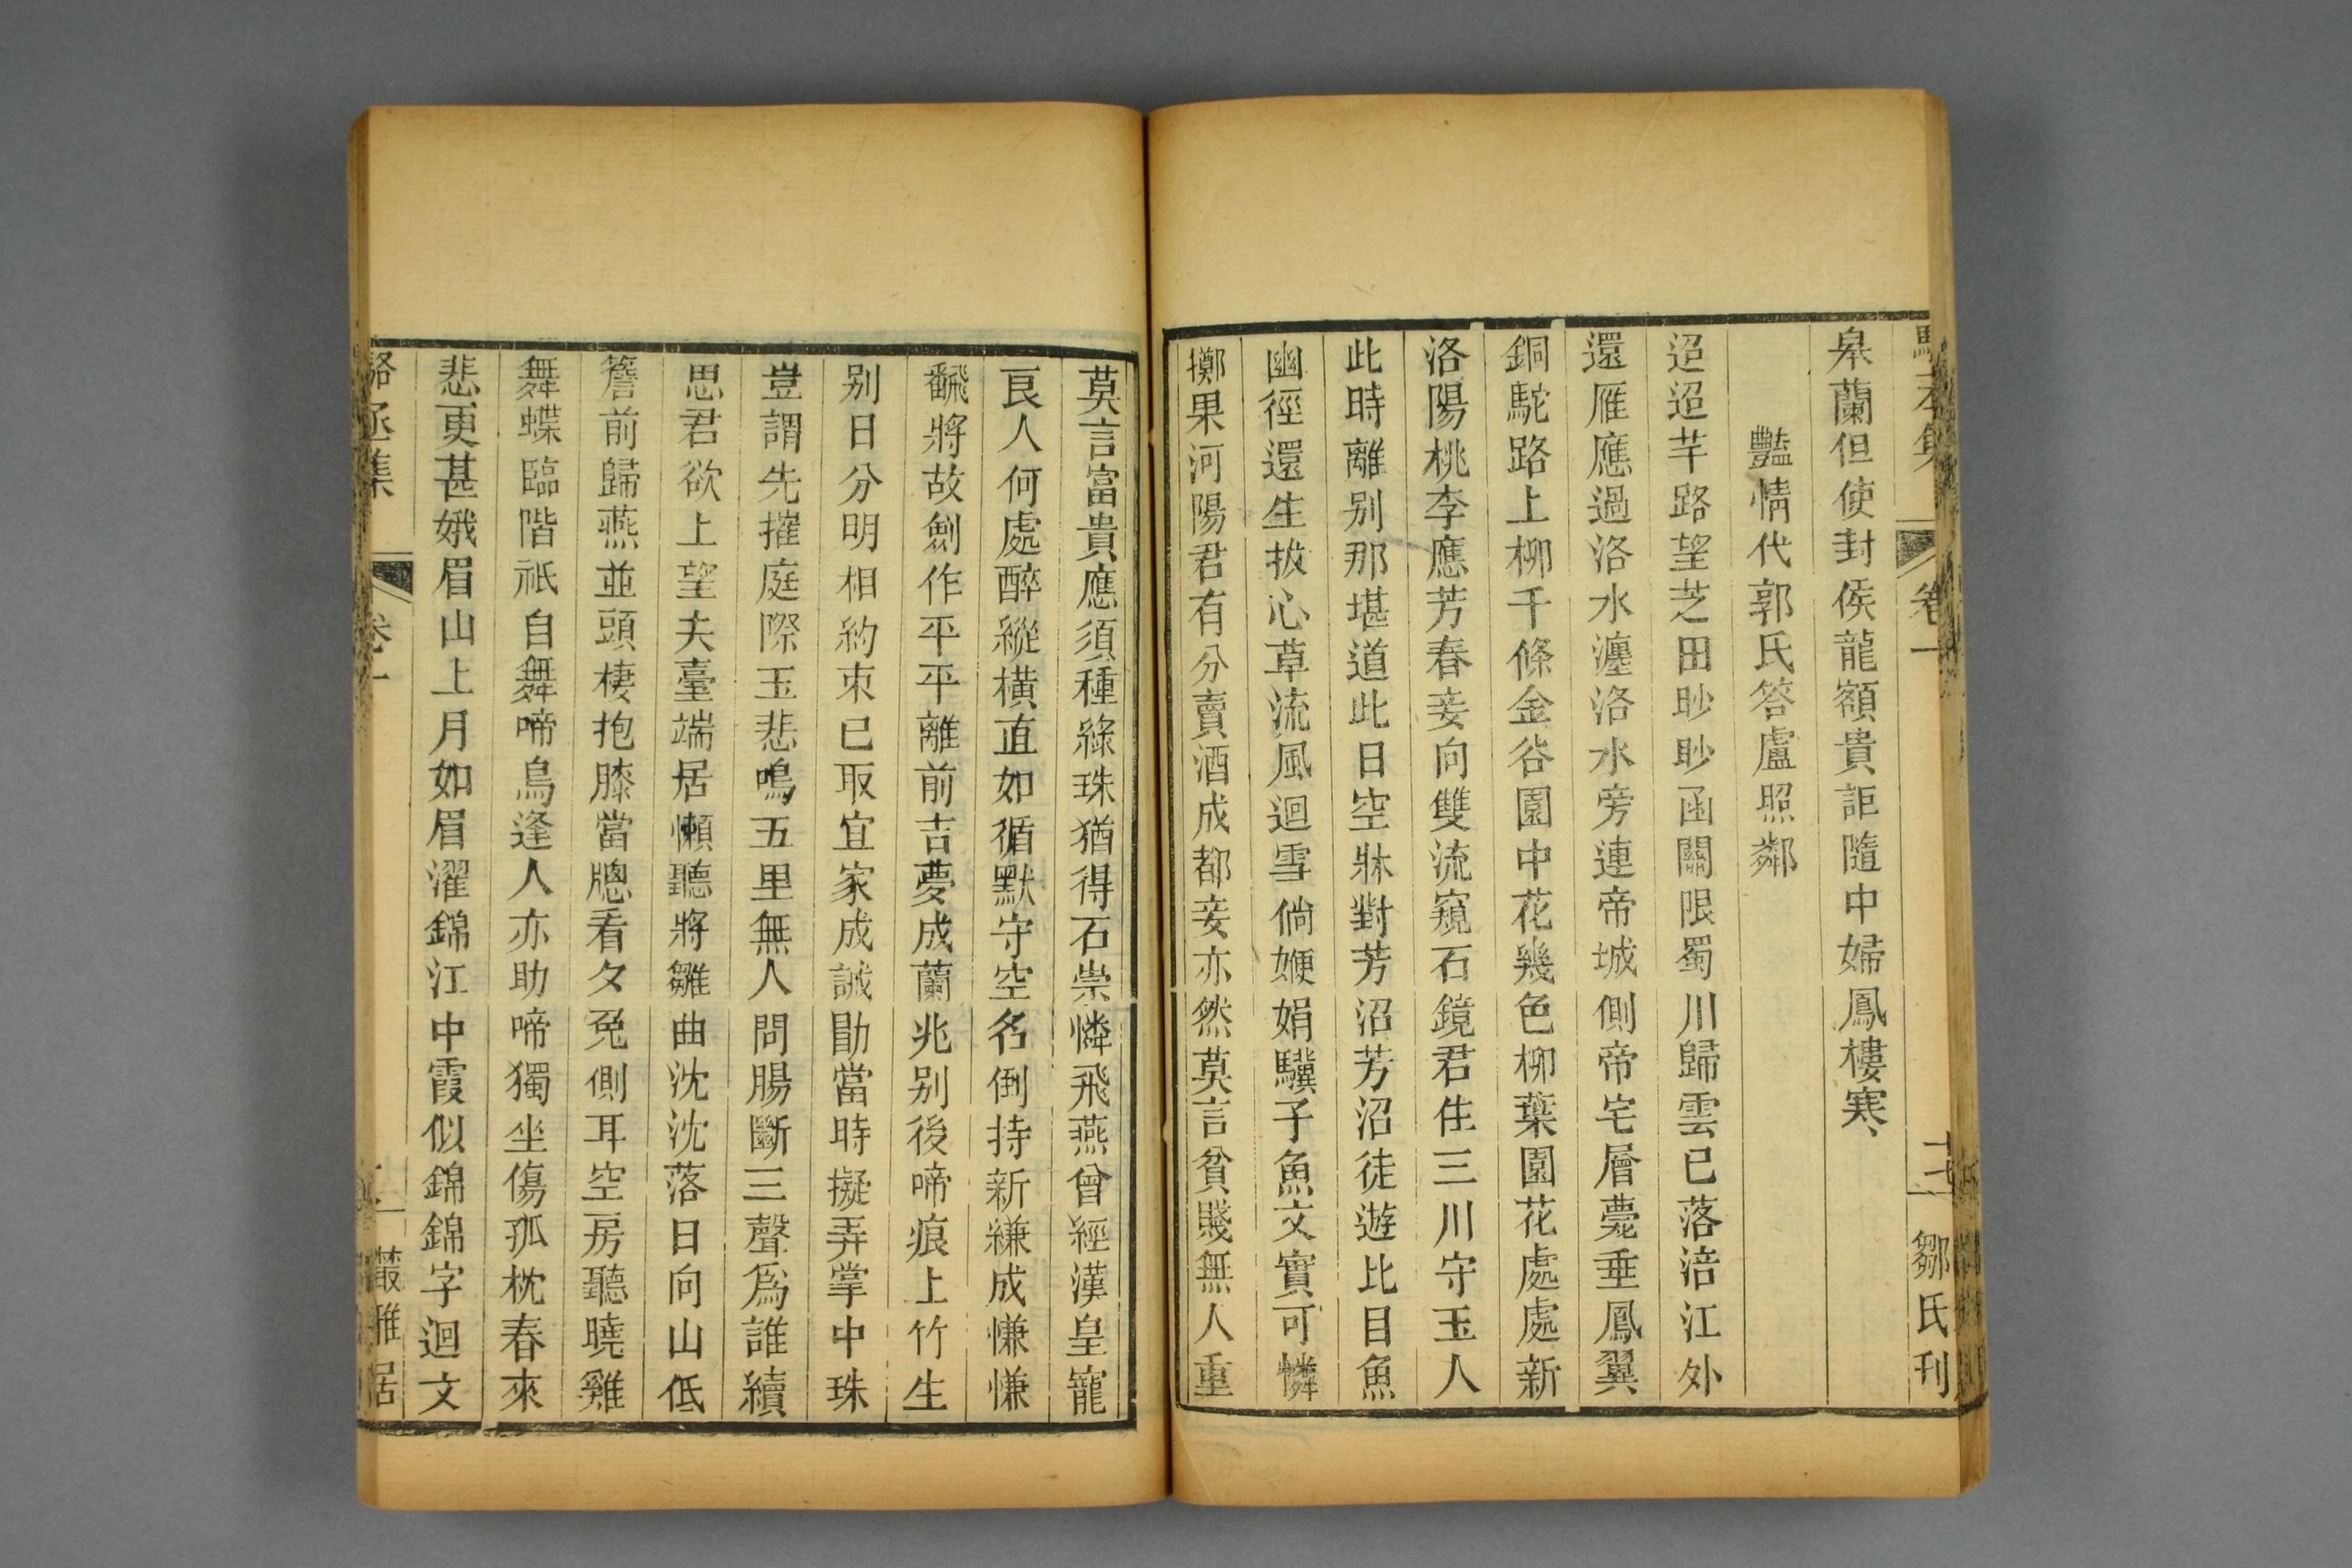 卷一
鄒氏刊
皋蘭但使封侯龍額貴詎隨中婦鳳樓寒
豔情代郭氏答盧照鄰
迢迢芊路望芝田眇眇函關限蜀川歸雲已落涪江外
還雁應過洛水瀍洛水旁連帝城側帝宅層甍垂鳳翼
銅駝路上柳千條金谷園中花幾色柳葉園花處處新
洛陽桃李應芳春妾向雙流窺石鏡君住三川守玉人
此時離別那堪道此日空牀對芳沼芳沼徒遊比目魚
幽徑還生拔心草流風迴雪倘娩娟驥子魚文實可憐
擲果河陽君有分賣酒成都妾亦然莫言貧賤無人重
莫言富貴應須種綠珠猶得石崇憐飛燕曾經漢皇寵
良人何處醉縱橫直如循默守空名倒持新縑成慊慊
飜將故劍作平平離前吉夢成蘭兆別後啼痕上竹生
別日分明相約束已取宜家成誡勖當時擬弄掌中珠
豈謂先摧庭際玉悲鳴五里無人問腸斷三聲爲誰續
思君欲上望夫臺端居懶聽將雛曲沈沈落日向山低
簷前歸燕並頭棲抱膝當牕看夕兔側耳空房聽曉雞
舞蝶臨階祇自舞啼鳥逢人亦助啼獨坐傷孤枕春來
悲更甚娥眉山上月如眉濯錦江中霞似錦錦字迴文
駱丞集
卷一
叢雅居